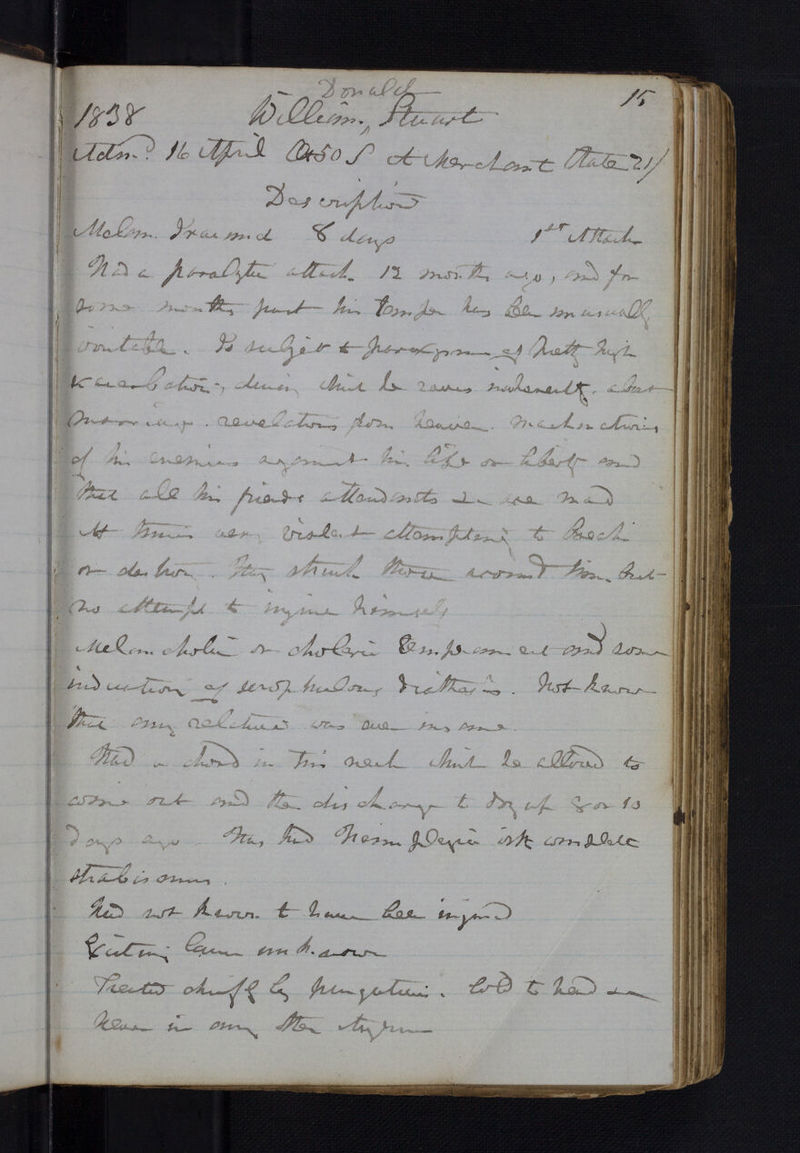 Donald
15
1838 William Stuart
Admd. 16 April Aet 50 S A Merchant Rate 21/
Description
Melan. 8 days 1st Attack
Had a paralytic attack 12 months ago, and for
some months past his temper has been unusually
irritable. Is subject to paroxysms of high
exacerbation, during which he raves incoherently about
marriage. revelations from heaven. machinations
of his enemies against his life or liberty and
that all his friends attendants &c are mad
At times very violent attempting to break
or destroy. Has struck those around him. but
no attempt to injure himself
Melancholic or choleric temperament and some
indication of scrophulous diathesis. Not known
that any relative was ever insane.
Had a in his neck which he allowed to
come out and the discharge to dry up 8 or 10
days ago. Has had Hemiplegia with complete
strabismus.
Head not known to have been injured
Exciting cause unknown
Treated chiefly by purgatives. Cold to head &c
Never in any other Asylum